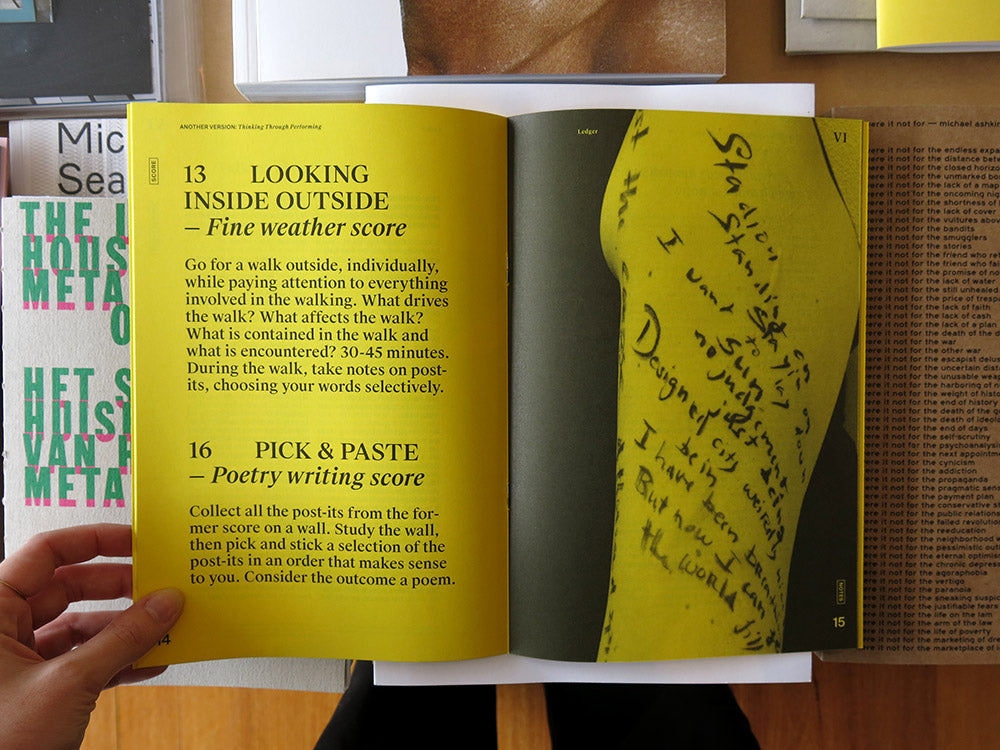 Mic
Sea
THE
HOUS
META
O
HET S
HUIS
VAN
META
ANOTHER VERSION: Thinking Through Performing
SCORE
13 LOOKING
INSIDE OUTSIDE
– Fine weather score
Go for a walk outside, individually,
while paying attention to everything
involved in the walking. What drives
the walk? What affects the walk?
What is contained in the walk and
what is encountered? 30-45 minutes.
During the walk, take notes on post-
its, choosing your words selectively.
16 PICK & PASTE
– Poetry writing score
Collect all the post-its from the for-
mer score on a wall. Study the wall,
then pick and stick a selection of the
post-its in an order that makes sense
to you. Consider the outcome a poem.
14
Ledger
VI
Standing
I want to
no judgement
Designed city
I have been
But now I can
the world
NOTES
15
ere it not for — michael ashki
ere it not for the endless expa
ere it not for the distance betw
ere it not for the closed horizo
ere it not for the unmarked bo
ere it not for the lack of a map
ere it not for the oncoming nig
ere it not for the shortness of
ere it not for the lack of cover
ere it not for the vultures abov
ere it not for the bandits
ere it not for the smugglers
ere it not for the stories
ere it not for the friend who ret
ere it not for the friend who fai
ere it not for the promise of no
ere it not for the lack of water
ere it not for the still unhealed
ere it not for the price of tresp
ere it not for the lack of faith
ere it not for the lack of cash
ere it not for the lack of a plan
ere it not for the death of the d
ere it not for the war
ere it not for the other war
ere it not for the escapist delus
ere it not for the uncertain dista
ere it not for the unusable weap
ere it not for the harboring of n
ere it not for the weight of histo
ere it not for the end of history
ere it not for the death of the
ere it not for the death of ideolo
ere it not for the end of days
ere it not for the self-scrutiny
ere it not for the psychoanalysi
ere it not for the next appointm
ere it not for the cynicism
ere it not for the addiction
ere it not for the propaganda
ere it not for the pragmatic sens
ere it not for the payment plan
ere it not for the conservative s
ere it not for the public relation
ere it not for the failed revolutio
ere it not for the reeducation
ere it not for the neighborhood w
ere it not for the pessimistic out
ere it not for the eternal optimis
ere it not for the chronic depres
ere it not for the agoraphobia
ere it not for the vertigo
ere it not for the paranoia
ere it not for the sneaking suspic
ere it not for the justifiable fears
ere it not for the life on the lam
ere it not for the arm of the law
ere it not for the life of poverty
ere it not for the marketing of dr
ere it not for the marketplace of i